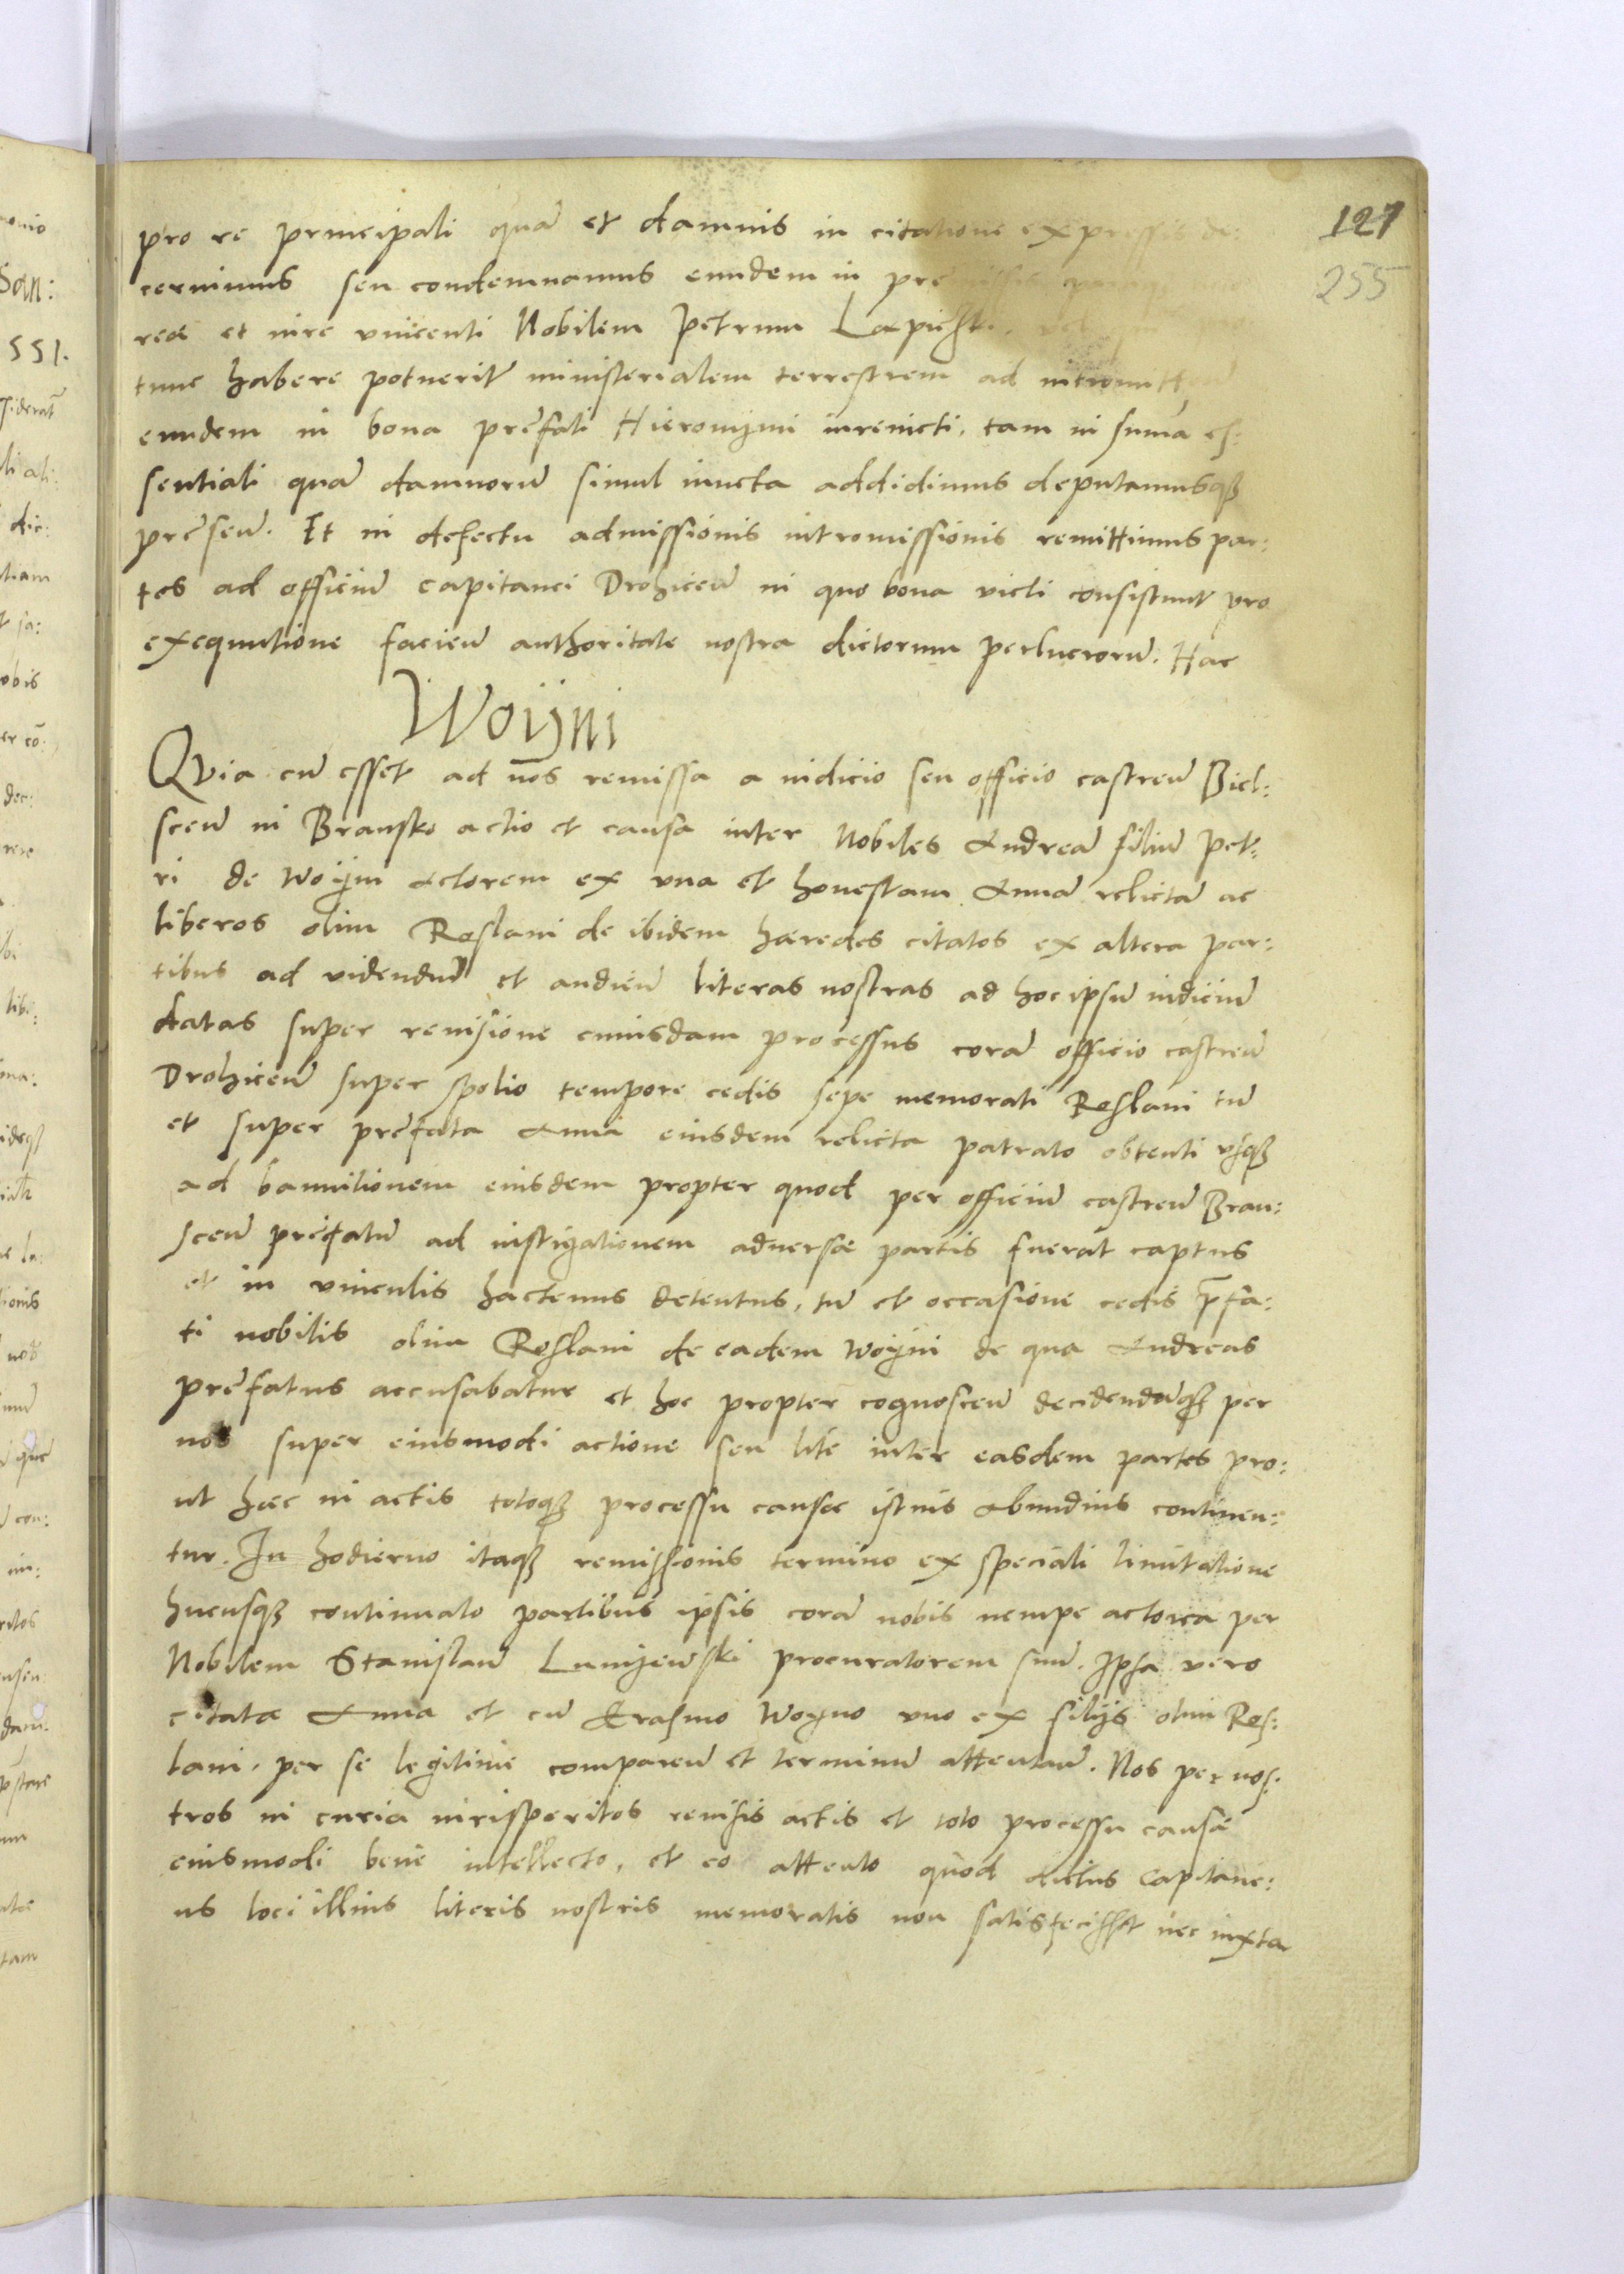 127
255
pro re principali quā et damnis in citatione expressis de:
cernimus seu condemnamus eundem in
rea et iure vincenti Nobilem Petrum Lapieski.
tunc habere potuerit ministerialem terrestrem ad intromitten̄
eundem in bona prefati Hieronijmi iurevicti, tam in suma es:
sentiali quā damnorū simul iuncta addidimus deputamusqȝ
presen̄. Et in defectu admissionis intromissionis remittimus par:
tes ad officiū capitanei Drohicen̄ in quo bona victi consistunt pro
exequutione facien̄ authoritate nostra dictorum perlucrorū. Hac
Woÿni
QVia cū esset ad nos remissa a iudicio seu officio castren̄ Biel:
scen̄ in Bransko actio et causa inter Nobiles Andreā filiū Pet:
ri de Woÿni Actorem ex vna et honestam Annā relictā ac
liberos olim Roslani de ibidem hæredes citatos ex altera par:
tibus ad videndū et audien̄ literas nostras ad hoc ipsū iudiciū
datas super reuisione cuiusdam processus corā officio castren̄
Drohicen̄ super spolio tempore cedis sepe memorati Roslani tū
et super prefata Anna eiusdem relicta patrato obtenti vsqȝ
ad bannitionem eiusdem propter quod per officiū castren̄ Bran:
scen̄ prefatū ad instigationem aduersæ partis fuerat captus
et in vinculis hactenus detentus, tū et occasione cedis p̄fa:
ti nobilis olim Roslani de eadem Woÿni de qua Andreas
prefatus accusabatur et hoc propter cognoscen̄ decidendūqȝ per
nos super eiusmodi actione seu lite inter easdem partes pro:
ut hæc in actis totoqȝ processu causæ istius abundius continen:
tur. In hodierno itaqȝ remissionis termino ex speciali limitatione
hucusqȝ continuato partibus ipsis corā nobis nempe actorea per
Nobilem Stanislaū Luniewski procuratorem suū. Ipsa vero
citata Anna et cū Erasmo Woyno vno ex filijs olim Ros:
lani, per se legitime comparen̄ et terminū attentan̄. Nos per nos:
tros in curia iurisperitos reuisis actis et toto processu causæ
eiusmodi bene intellecto, et eo attento quod dictus Capitane:
us loci illius literis nostris memoratis non satisfecisset nec iuxta